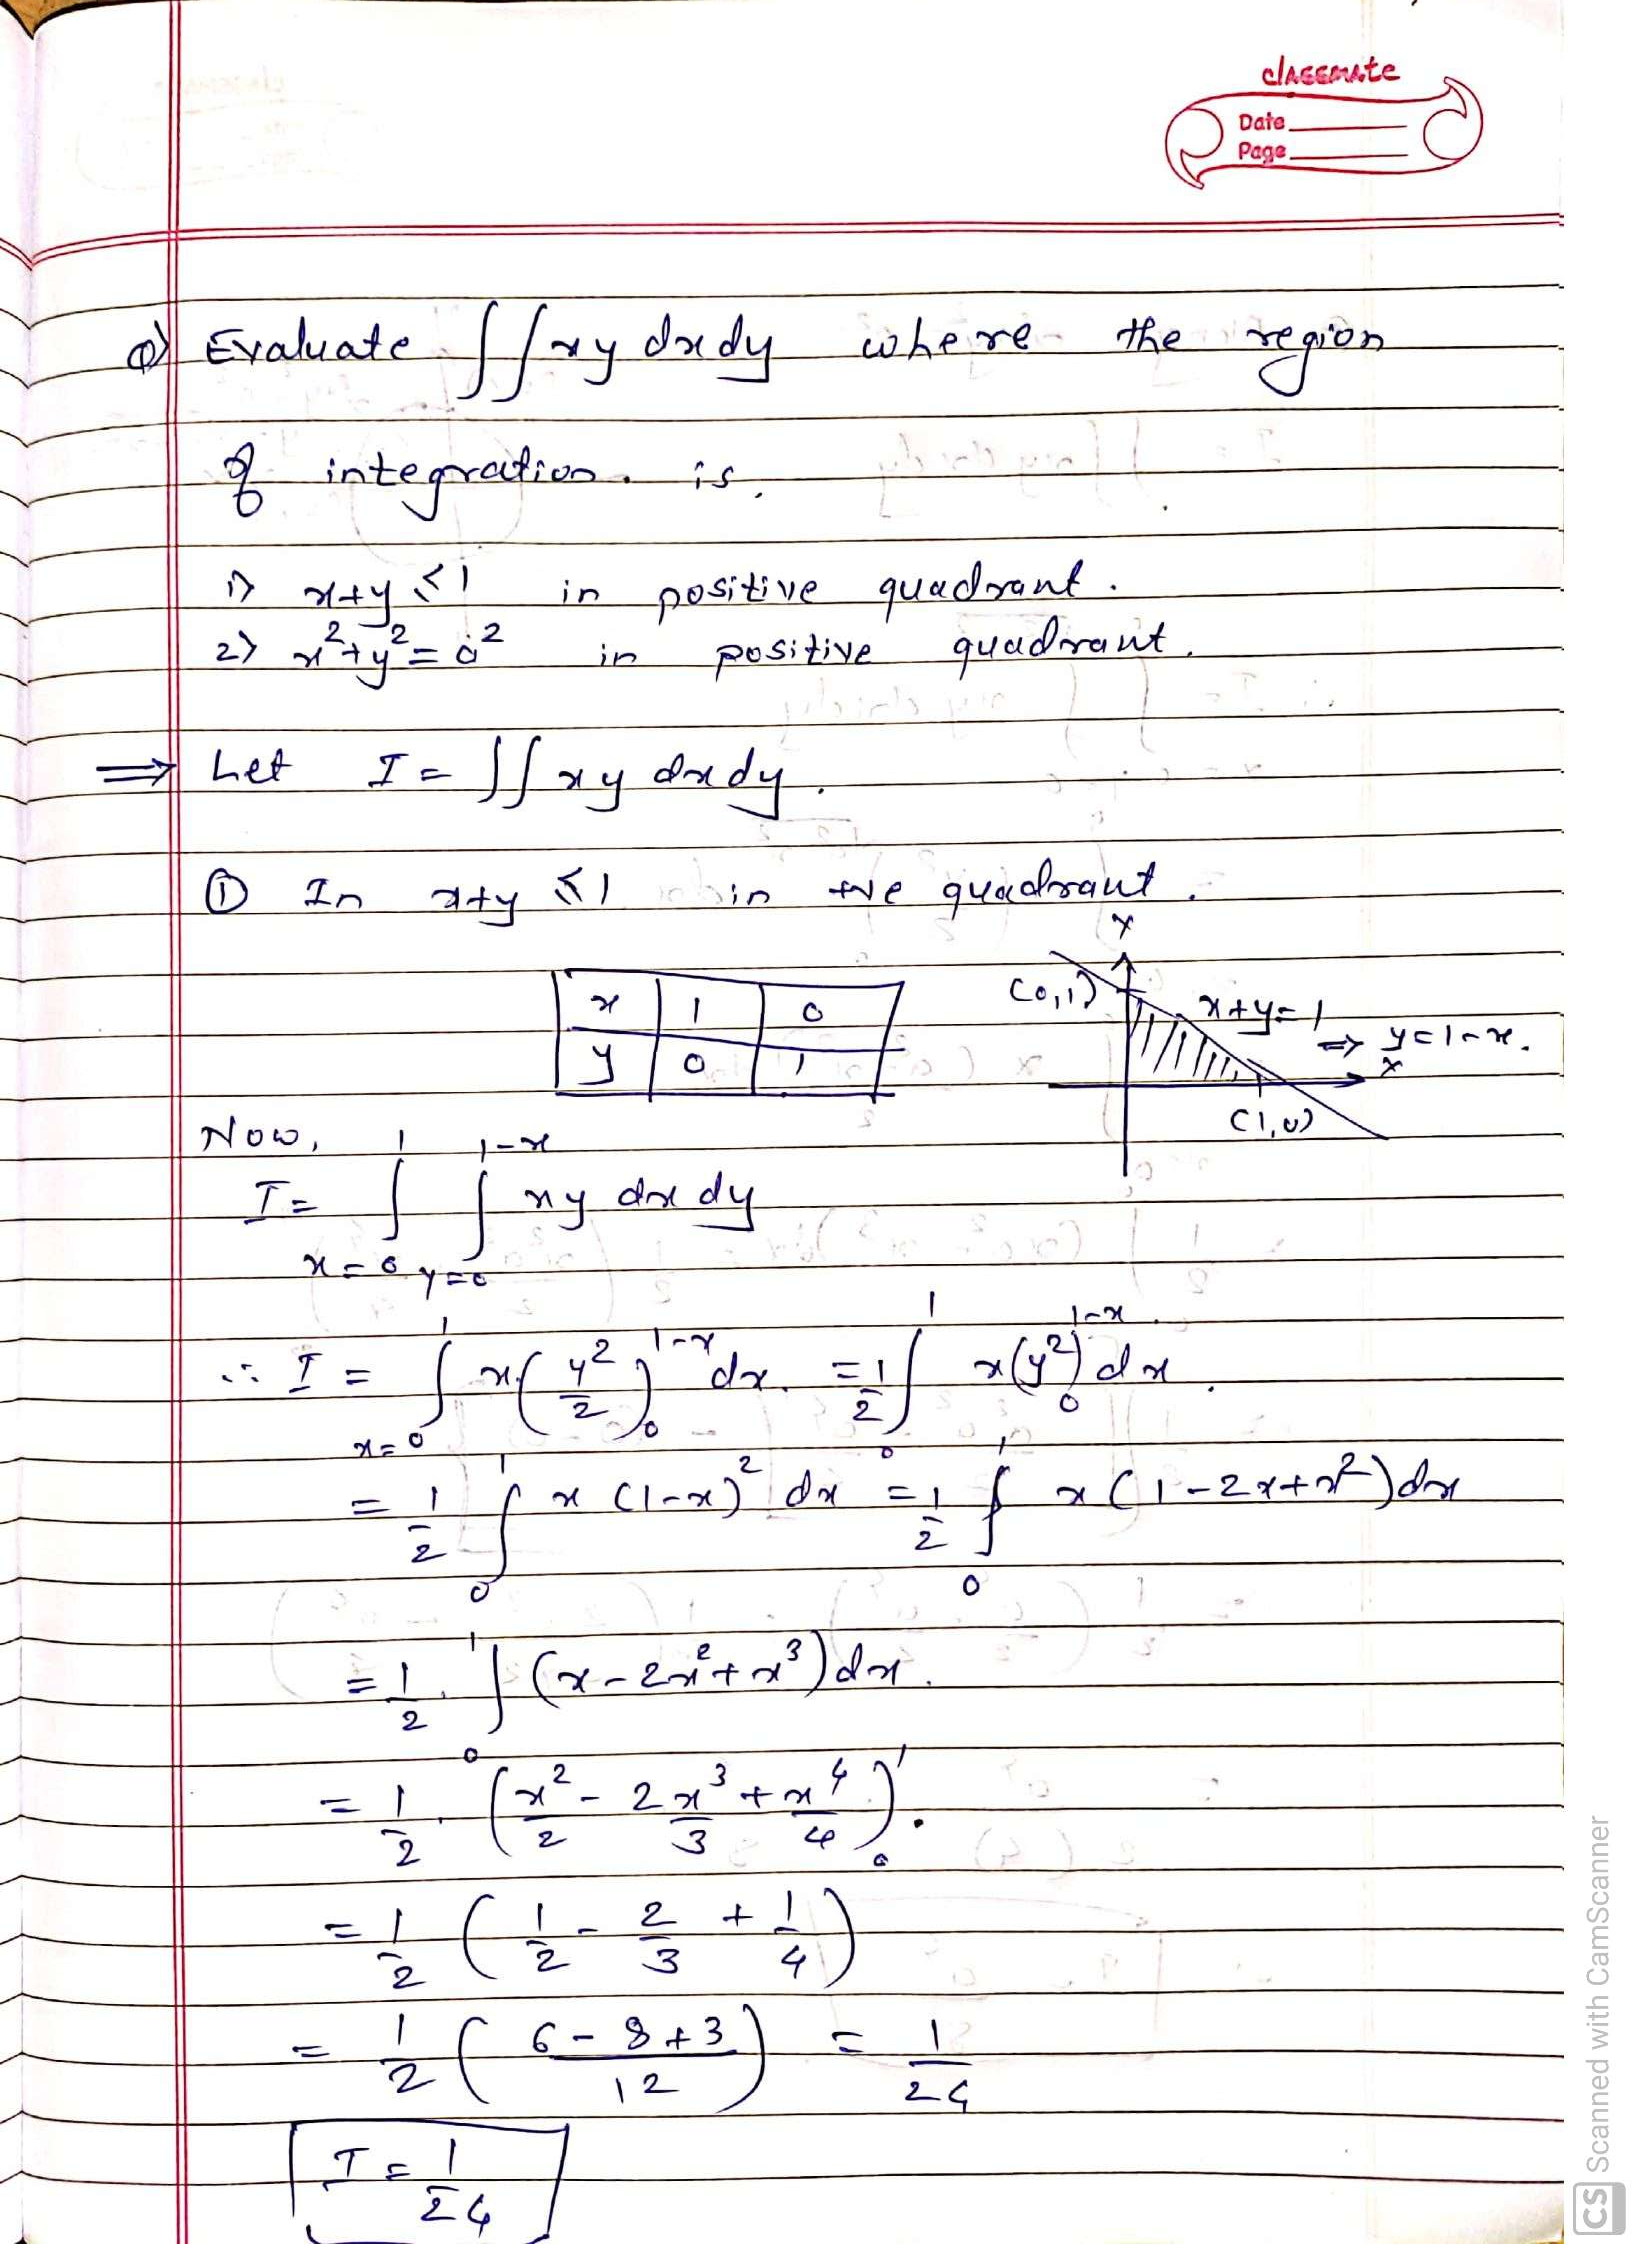 classmate
Date
Page
Q) Evaluate ∫∫ xy dx dy where the region
of integration is.
1) x+y ≤ 1 in positive quadrant.
2) x²+y² = a² in positive quadrant.
⇒ Let I = ∫∫ xy dx dy.
① In x+y ≤ 1 in +ve quadrant.
Y
x 1 0
y 0 1
(0,1)
x+y=1
⇒ y=1-x.
X
(1,0)
Now,
I = ∫_{x=0}^{1} ∫_{y=0}^{1-x} xy dx dy
∴ I = ∫_{x=0}^{1} x.(y²/2)_0^{1-x} dx. = 1/2 ∫_0^1 x(y²)_0^{1-x} dx.
= 1/2 ∫_0^1 x (1-x)² dx = 1/2 ∫_0^1 x (1-2x+x²) dx
= 1/2 . ∫_0^1 (x-2x²+x³) dx.
= 1/2 . (x²/2 - 2x³/3 + x⁴/4)_0^1.
= 1/2 (1/2 - 2/3 + 1/4)
= 1/2 ((6-8+3)/12) = 1/24
I = 1/24
CS Scanned with CamScanner